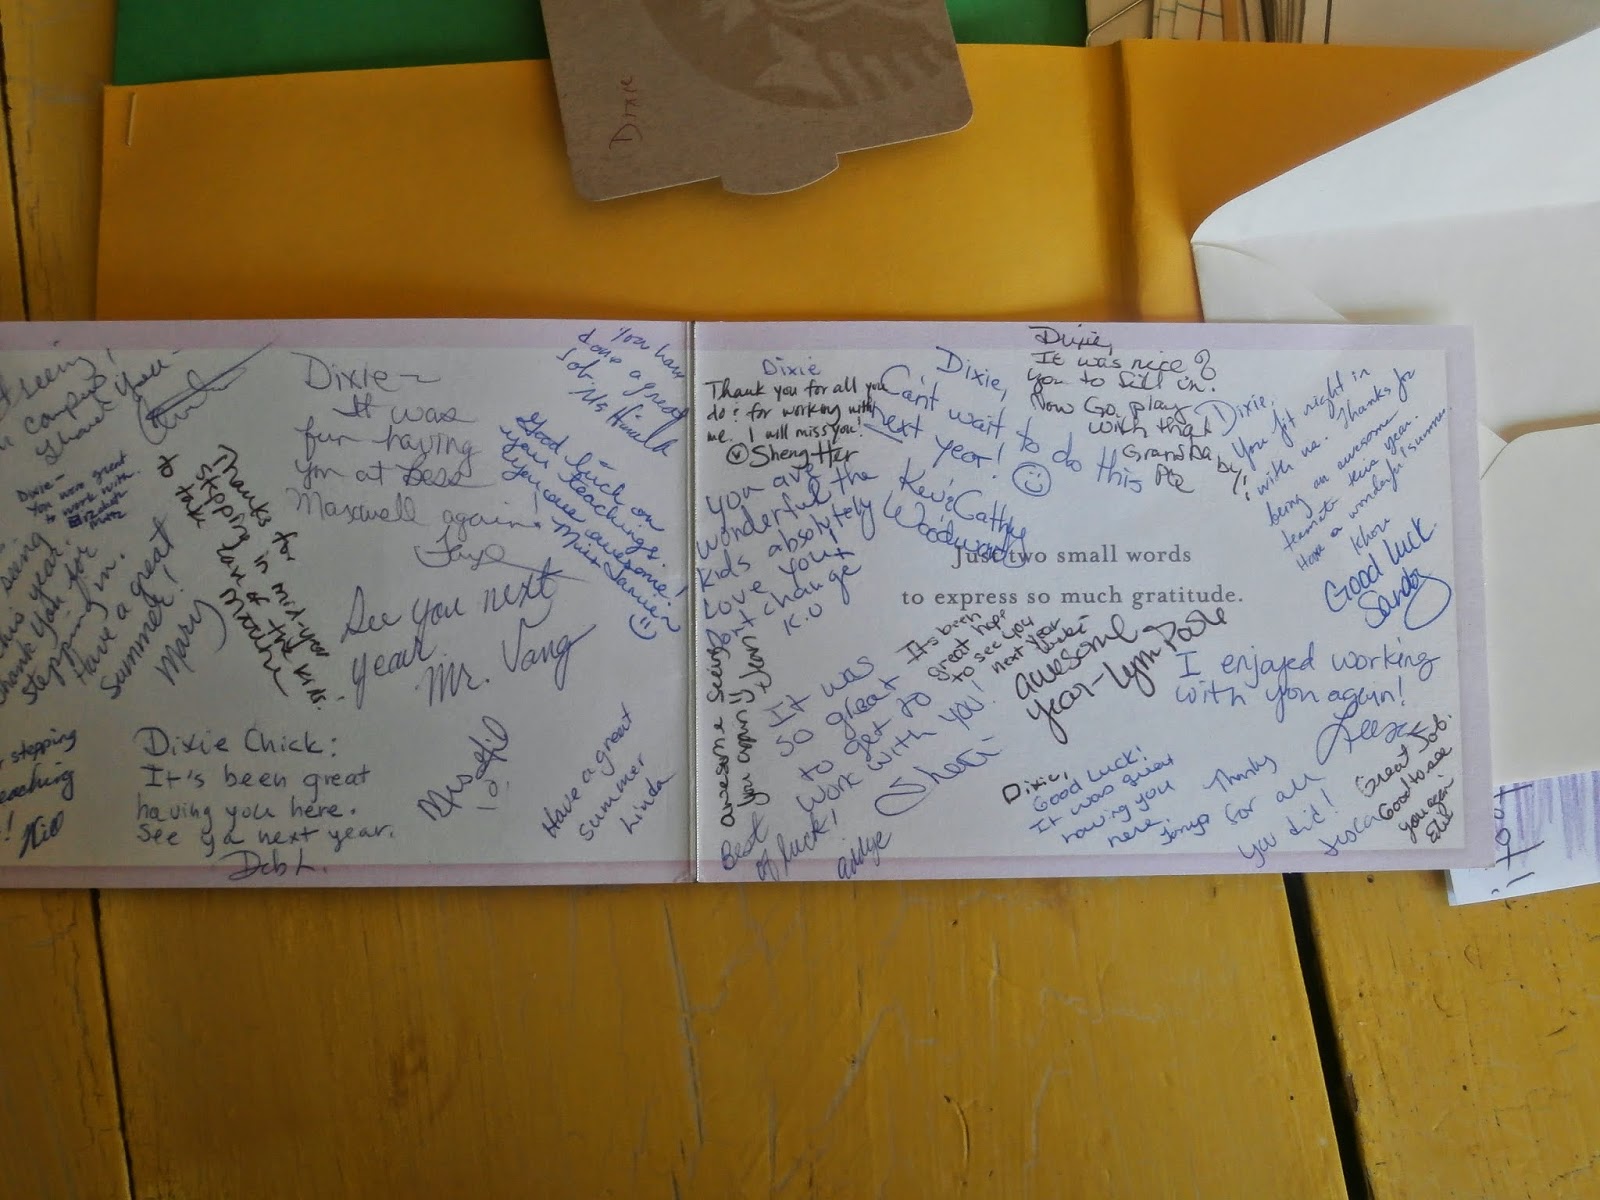 Dixie
seeing
campus!
you -
Dixie -
You were great
to work with
seeing
this year.
thank you for
stepping in.
Have a great
summer!
Mary
Thanks for
stepping in mid-year
to take care of the kids.
Dixie ~
It was
fun having
you at Bess
Maxwell again!
Faye
You have
done a great
job. Ms
Good luck on
your teachings.
You are awesome!
Miss
See you next
year
Mr. Vang
stepping
teaching
Dixie Chick:
It's been great
having you here.
See ya next year.
Deb L.
Have a great
summer
Linda
Dixie
Thank you for all you
do & for working with
me. I will miss you!
Sheng Her
You are
wonderful the
kids absolutely
love you!
Don't change
K.U
awesome seeing
you again!!
Dixie,
Can't wait to do this
next year!
Kev & Cathy
Woodward
Dixie,
It was nice of
you to fill in.
Now Go play
with that
Grandbaby!
Dixie,
You fit right in
with us. Thanks for
being an awesome
teammate this year.
Have a wonderful summer.
Khou
Good Luck
Sandy
Just two small words
to express so much gratitude.
It's been
great hope
to see you
next year
awesome
year - Lynn
It was
so great
to get to
work with you!
Sheri
Best
of luck!
I enjoyed working
with you again!
Dixie,
Good Luck!
It was great
having you
here.
Thanks
for all
you did!
Great Job.
Good to see
you again